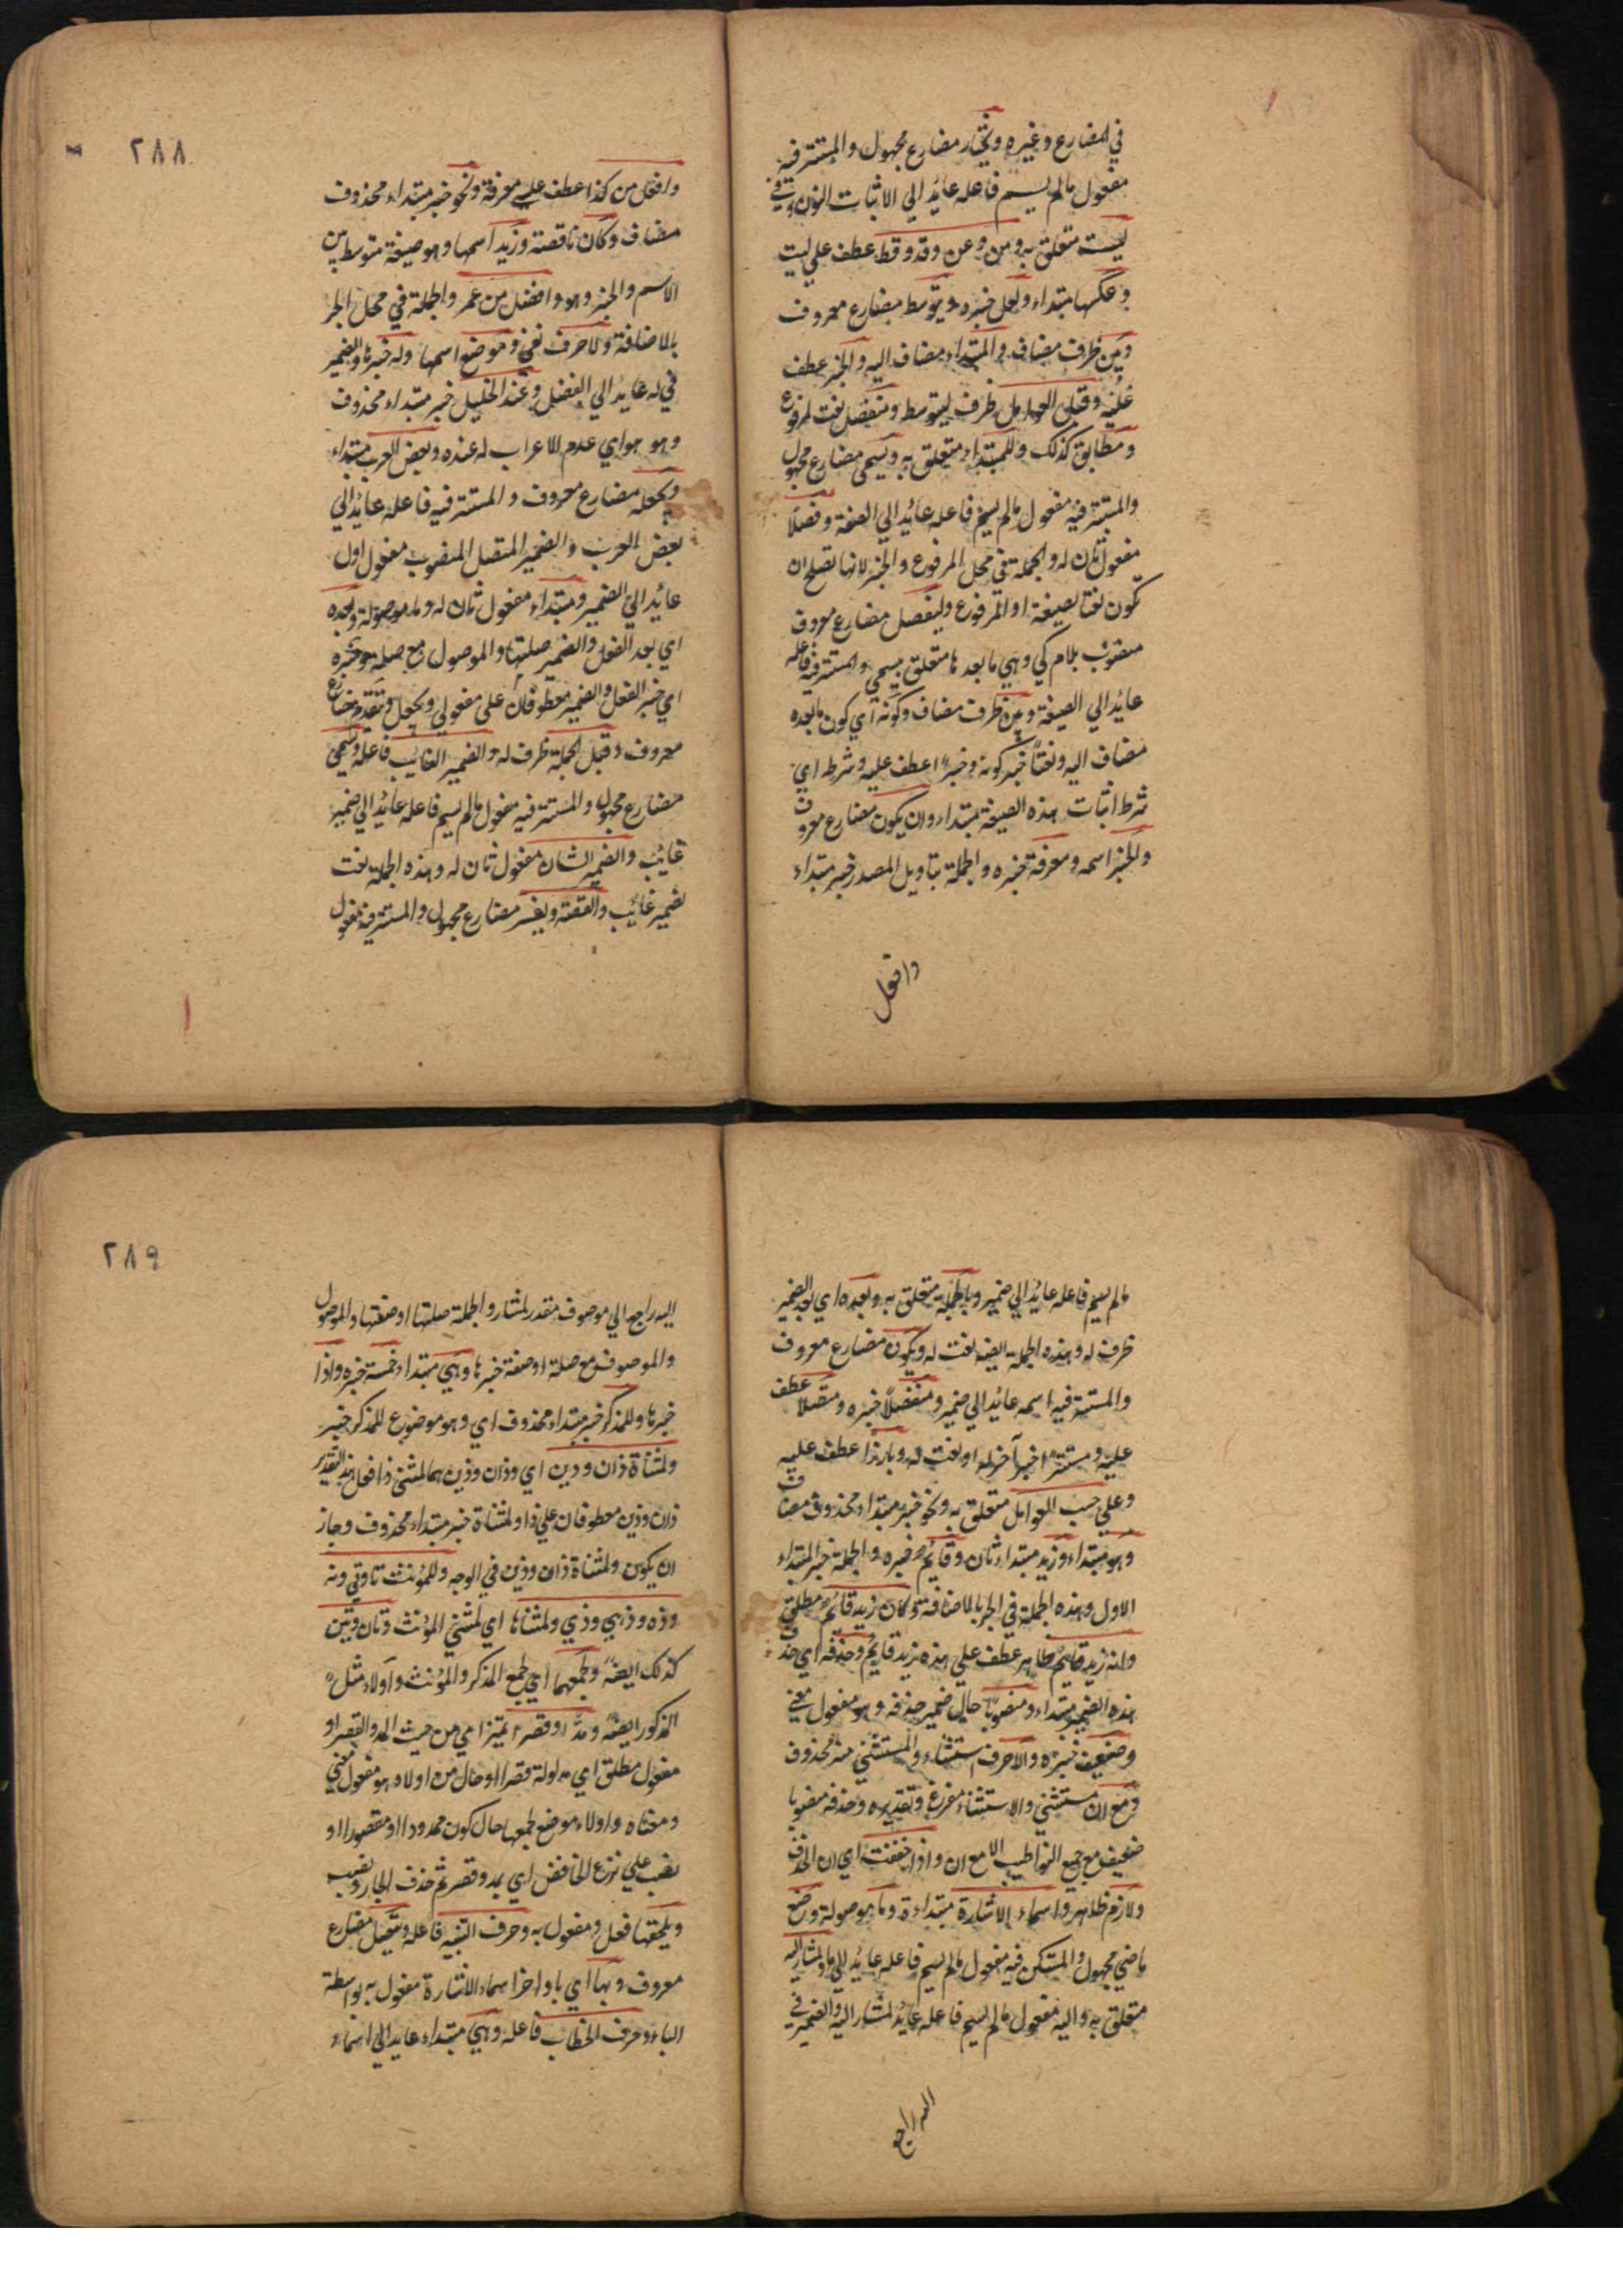 في المضارع وغيره ويختار مضارع مجهول والمستتر فيه
مفعول مالم يسم فاعله عائد الي الاثبات النون وفي
ليت متعلق به ومن وعن وقد وقط عطف علي ليت
وعكسها مبتداء ولعل خبره ويتوسط مضارع معروف
وبين ظرف مضاف والمبتداء مضاف اليه والخبر عطف
عليه وقبل العوامل ظرف ليتوسط ومنفصل نعت لمرفوع
ومطابق كذلك وللمبتداء متعلق به ويسمى مضارع مجهول
والمستتر فيه مفعول مالم يسم فاعله عائد الي الصيغة وفصلا
مفعول ثان له والجملة في محل المرفوع والخبر لانها تصلح ان
تكون نعتا لصيغة او المرفوع وليفصل مضارع معروف
منصوب بلام كي وهي مابعدها متعلق بيسمي والمستتر فيه فاعله
عايد الي الصيغة وبين ظرف مضاف وكونه اي كون مابعده
مضاف اليه ونعتا خبر كونه وخبرا عطف عليه وشرطه اي
شرط اثبات هذه الصيغة مبتداء وان يكون مضارع معروف
والخبر اسمه ومعرفة خبره والجملة بتاويل المصدر خبر مبتداء
وافعل
٢٨٨
وافعل من كذا عطف علي معرفة ونحو خبر مبتداء محذوف
مضاف وكان ناقصة وزيد اسمها وهو صيغة متوسط بين
الاسم والخبر وهو وافضل من عمر والجملة في محل الجر
بالاضافة ولا حرف نفي وموضع اسمها وله خبرها والضمير
في له عايد الي الفصل وعند الخليل خبر مبتداء محذوف
وهو هو اي عدم الاعراب له عنده وبعض العرب مبتداء
ويجعله مضارع معروف والمستتر فيه فاعله عايد الي
بعض العرب والضمير المتصل المنصوب مفعول اول
عائد الي الضمير ومبتداء مفعول ثان له وما موصولة وبعده
اي بعد الفعل والضمير صلتها والموصول مع صلته وخبره
اي خبر الفعل والضمير معطوفان علي مفعولي ويجعل وتقدم مضارع
معروف وقبل الجملة ظرف له والضمير الغايب فاعله ويسمي
مضارع مجهول والمستتر فيه مفعول مالم يسم فاعله عايد الي ضمير
غايب والضمير الشان مفعول ثان له وهذه الجملة نعت
لضمير غايب والقصة ويفسر مضارع مجهول والمستتر فيه مفعول
مالم يسم فاعله عايد الي ضمير وبالجملة متعلق به وبعده اي بعد الضمير
ظرف له وهذه الجملة ايضه نعت له ويكون مضارع معروف
والمستتر فيه اسمه عايد الي ضمير ومنفصلا خبره ومتصلا عطف
عليه ومستترا خبر آخر له او نعت له وبارزا عطف عليه
وعلي حسب العوامل متعلق به ونحو خبر مبتداء محذوف مضاف
وهو مبتداء وزيد مبتداء ثان وقايم خبره والجملة خبر المبتداء
الاول وهذه الجملة في الجر بالاضافة وكان زيد قايم مطلق
وانه زيد قايم ظاهر عطف علي هذه زيد قايم وحذفه اي حذف
هذه الضمير مبتداء ومنصوبا حال ضمير حذفه وهو مفعول معني
وضعيف خبره والا حرف استثناء والمستثني منه محذوف
ومع ان مستثني والاستثناء مفرغ وتقديره وحذفه منصوبا
ضعيف مع جميع الا مع ان واذا خففت اي ان الحذف
ولازم ظاهر واسماء الاشارة مبتداءة وما موصولة وضع
ماضي مجهول والمستكن فيه مفعول مالم يسم فاعله عايد الي ما ولمشار اليه
متعلق به واليه مفعول مالم يسم فاعله عايد لمشار اليه والضمير في
اليه راجع
٢٨٩
اليه راجع الي موصوف مقدر لمشار والجملة صلتها او صفتها والموصول
والموصوف مع صلة او صفة خبرها وهي مبتداء خمسة خبره واذا
خبرها وللمذكر خبر مبتداء محذوف اي وهو موضوع للمذكر خبر
ولمثناة ذان وذين اي وذان وذين هما لمثني ذا فعل هذا التقدير
ذان وذين معطوفان علي ذا ولمثناة خبر مبتداء محذوف وجاز
ان يكون ولمثناة ذان وذين في الوجه وللمؤنث تا وتي وته
وذه وذهي وذي ولمثناها اي لمثني المؤنث وتان وتين
كذلك ايضه ولجمعهما اي لجمع المذكر والمؤنث واولاء مثل
المذكور ايضه ومدا وقصرا تميزا اي من حيث المد والقصر او
مفعول مطلق اي مد اولة قصرا او حال من اولاء وهو مفعول معني
ومعناه واولاء موضع لجمعها حال كون ممدودا او مقصورا او
نصب علي نزع الخافض اي بمد وقصر ثم حذف الجار ونصب
ويلحقها فعل ومفعول به وحرف التنبيه فاعله ويتصل مضارع
معروف وبها اي باواخر اسماء الاشارة مفعول به بواسطة
الباء وحرف الخطاب فاعله وهي مبتداء عايد الي اسماء